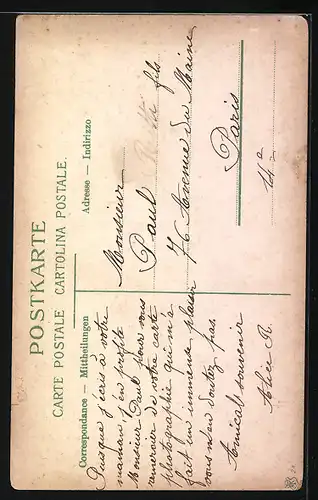 POSTKARTE
CARTE POSTALE CARTOLINA POSTALE.
Correspondance — Mittheilungen
Puisque j'écris à votre
maman j'en profite
Monsieur Paul pour vous
remercier de votre carte
photographie qui m'a
fait un immense plaisir
vous n'en doutez pas.
Amical souvenir
Alice R.
Adresse — Indirizzo
Monsieur
Paul fils
76 Avenue du Maine
Paris
14e